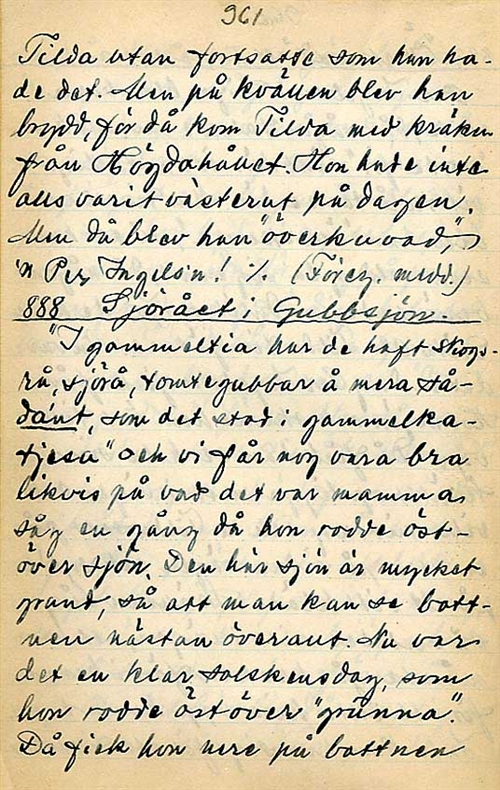 961
Tilda utan fortsatte som hun ha-
de det. Men på kvällen blev han
brydd, för då kom Tilda med kräken
från Högdahållet. Hon hade inte
alls varit västerut på dagen.
Men då blev han "överkuvad",
'n Per Ingels'n! ./. (Föreg. medd.)
888 Sjörået i Gubbsjön.
"I gammeltia har de haft skogs-
rå, sjörå, tomtegubbar å mera så-
dánt, som det stod i gammelka-
tjesa" och vi får nog vara bra
likvis på vad det var mamma
såg en gång då hon rodde öst-
över sjön. Den här sjön är mycket
grund, så att man kan se bott-
nen nästan överallt. Nu var
det en klar solskensdag, som
hon rodde östöver "grúnna".
Då fick hon nere på bottnen